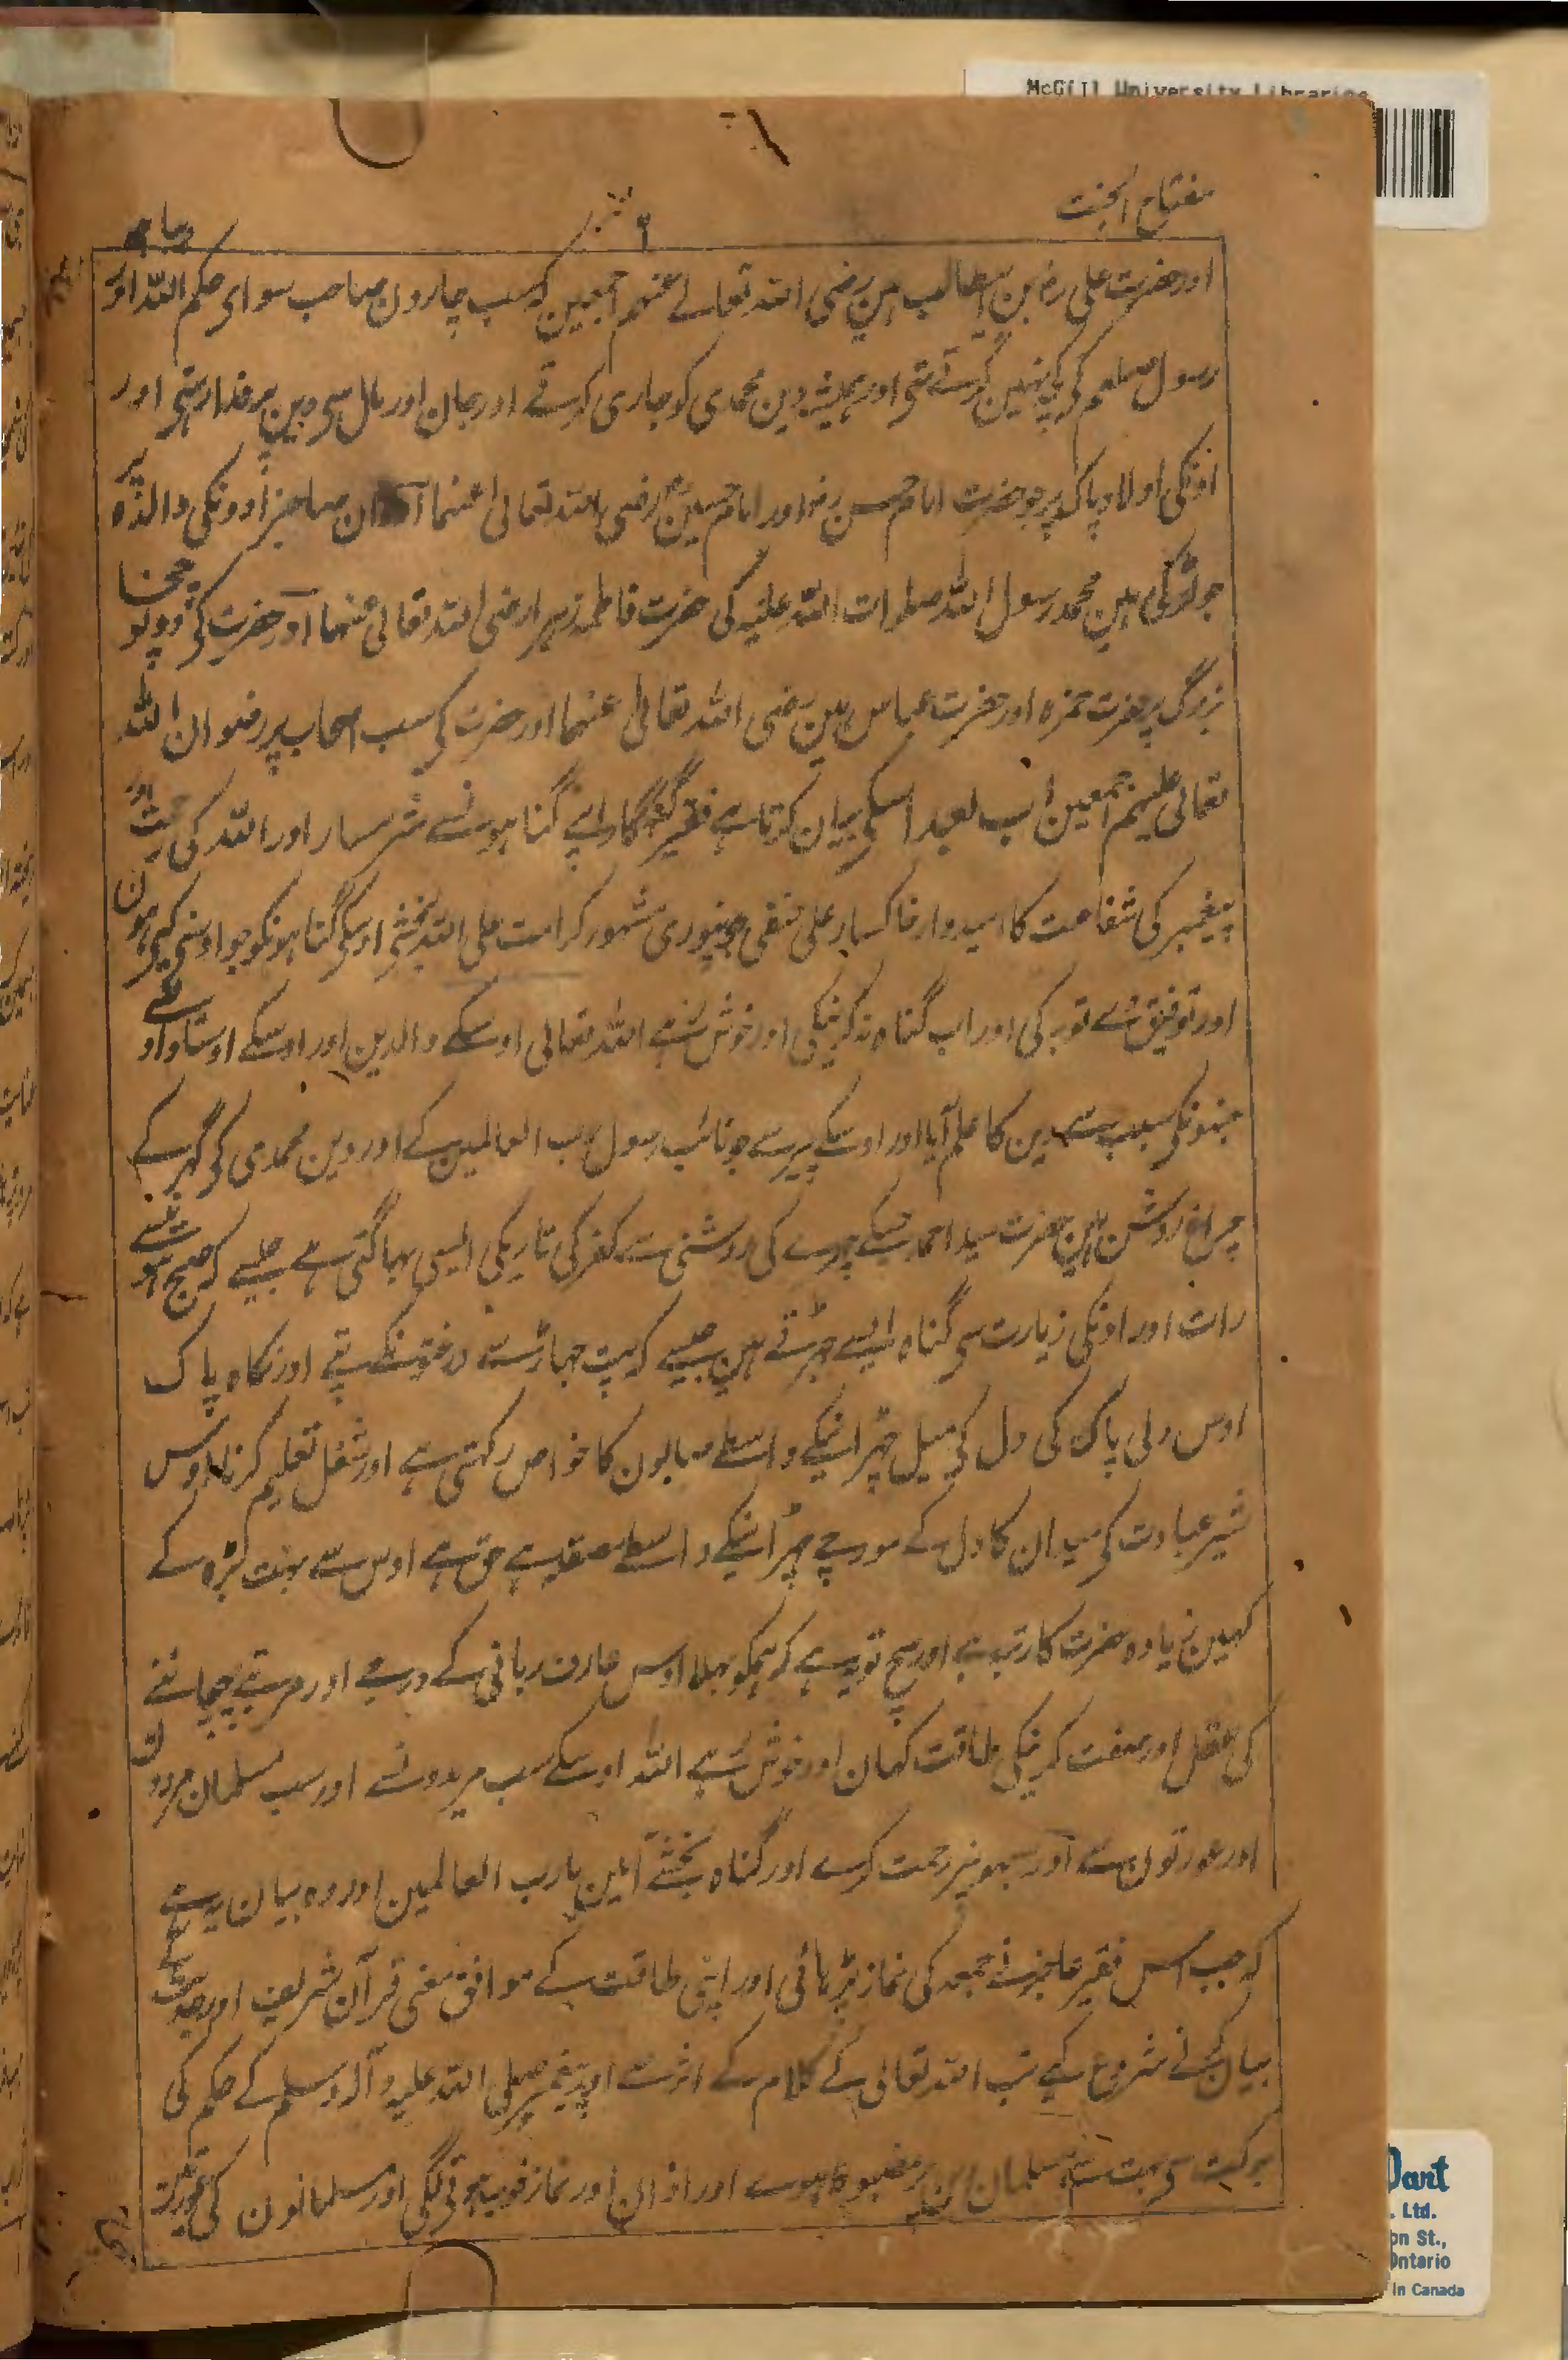 McGill University Libraries
مفتاح الجنت
۲
دیباچہ
اور حضرت علی رض بن ابیطالب ہین رضی اللہ تعالے عنہم اجمعین کہ سب چارون صاحب سوای حکم اللہ اور
رسول صلعم کی کچھ نہین کرتے تھی اور ہمیشہ دین محمدی کو جاری کرتے اور جان اور مال سی دین پر فدا رہتی اور
اونکی اولاد پاک پر جو حضرت امام حسن رض اور امام حسین رض رضی اللہ تعالی عنہما اور ان صاحبزادونکی والدہ پر
جو لڑکی ہین محمد رسول اللہ صلوات اللہ علیہ کی حضرت فاطمہ زہرا رضی اللہ تعالی عنہما اور حضرت کی دونو چچا
بزرگ پر حضرت حمزہ اور حضرت عباس ہین رضی اللہ تعالی عنہما اور حضرت کی سب اصحاب پر رضوان اللہ
تعالی علیہم اجمعین اب بعد اسکی بیان کرتا ہے فقیر گنہگار اپنے گناہونسے شرمسار اور اللہ کی رحمت اور
پیغمبر کی شفاعت کا امیدوار خاکسار علی حنفی جونپوری مشہور کرامت علی اللہ بخشے اوسکی گناہونکو جو اوسنی کیی ہون
اور توفیق دے توبہ کی اور اب گناہ نہ کرنیکی اور خوش رہے اللہ تعالی اوسکے والدین اور اوسکے اوستادو سے
جنہونکی سبب سے دین کا علم آیا اور اوسکے پیر سے جو نائب رسول رب العالمین کے اور دین محمدی کی گھر کے
چراغ روشن ہین حضرت سید احمد جنکے چہرے کی روشنی سے کفر کی تاریکی ایسی بھاگتی ہے جیسے کہ صبح ہوتے
رات اور اونکی زیارت سی گناہ ایسے جھڑتے ہین جیسے کہ پت جھاڑ سے درختونکے پتے اور نگاہ پاک
اوس ولی پاک کی دل کی میل چھڑانیکے واسطے صابون کا خواص رکھتی ہے اور شغل تعلیم کرنا اوس
شیر عبادت کی میدان کا دل کے مورچے چھڑانیکے واسطے صیقل ہے حق ہے اوس سے بہت بڑہ کے
کہین زیادہ حضرت کا رتبہ ہے اور سچ تو یہ ہے کہ ہمکو بھلا اوس عارف ربانی کے درجے اور مرتبے پہچاننے
کی عقل اور صفت کرنیکی طاقت کہان اور خوش رہے اللہ اوسکے سب مریدونسے اور سب مسلمان مردون
اور عورتون سے اور سبھونپر رحمت کرے اور گناہ بخشے آمین یا رب العالمین اور وہ بیان یہ ہے
کہ جب اس فقیر عاجز نے جمعہ کی نماز پڑہائی اور اپنی طاقت کے موافق معنی قرآن شریف اور حدیث کے
بیان کرنے شروع کیے تب اللہ تعالی کے کلام کے اثر سے اور پیغمبر صلی اللہ علیہ و آلہ وسلم کے حکم کی
برکت سی بہت سے مسلمان دین پر مضبوط ہوے اور اذان اور نماز خوب ہونے لگی اور مسلمانون کی عورتین
Dart
. Ltd.
on St.,
Ontario
in Canada